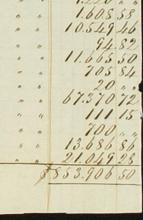 1.220 " "
" " 1.608 58
" " 10549 46
" " 94.82
" " 11.665 50
" " 705 84
" " 20 " "
" " 67.370 72
" " 111.15
" " 700 " "
" " 13.686 86
" " 21.049 28
$ 853.906 50